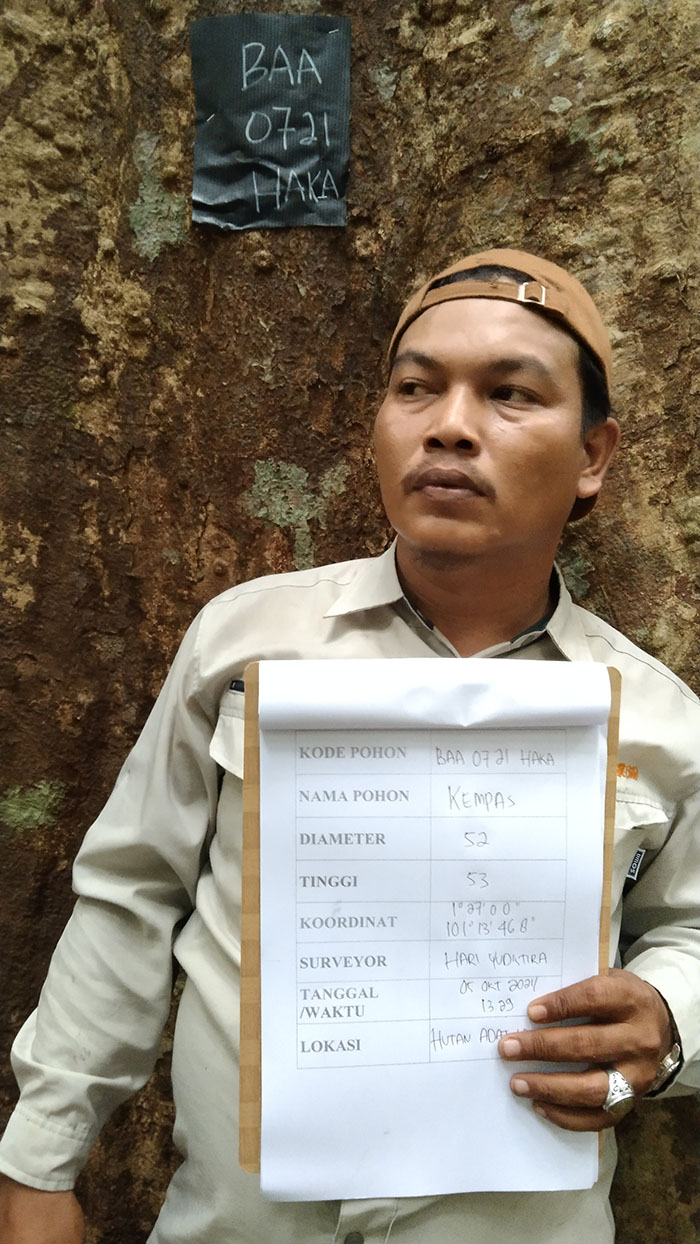 BAA
0721
HAKA
KODE POHON BAA 0721 HAKA
NAMA POHON KEMPAS
DIAMETER 52
TINGGI 53
KOORDINAT 1° 27' 0 0"
101° 13' 46 8"
SURVEYOR HARI YUDISTIRA
TANGGAL 05 OKT 2021
/WAKTU 13.29
LOKASI HUTAN ADAT